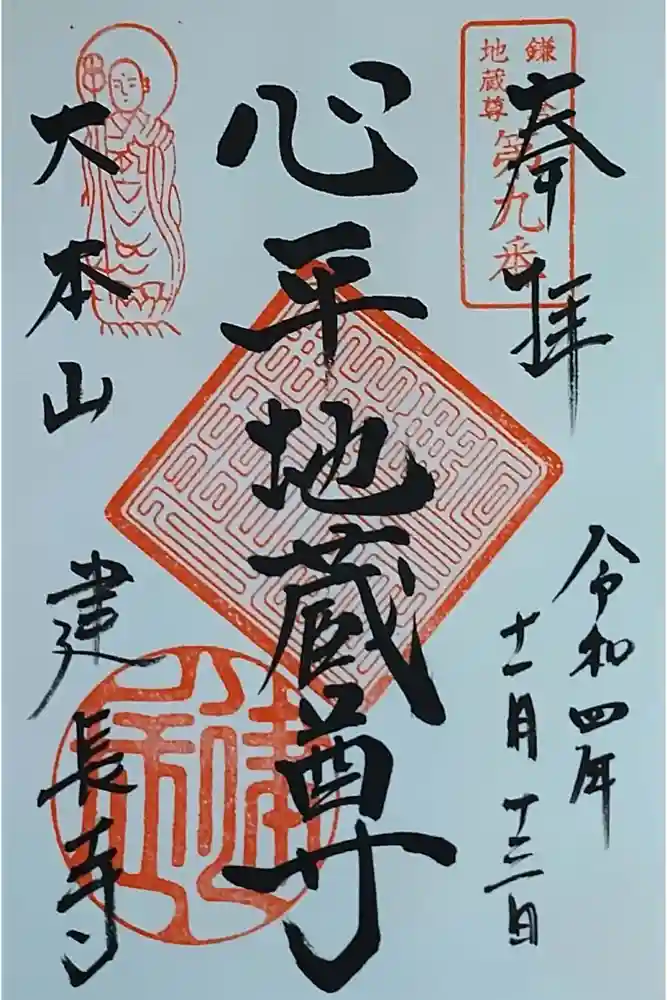 奉拝
鎌倉
地蔵尊
第九番
令和四年
十一月十三日
心平地蔵尊
大本山
建長寺